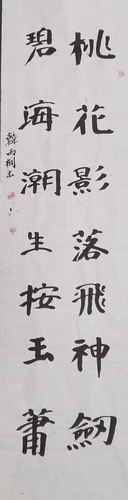 桃花影落飛神劍
碧海潮生按玉簫
韓雨桐书